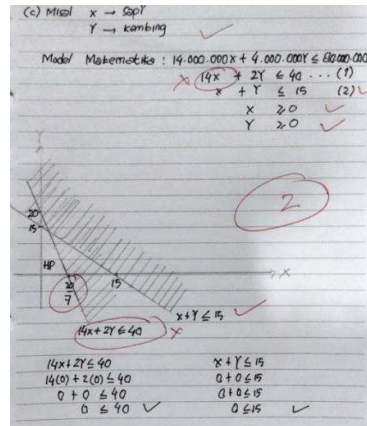 (c) Misal x → sapi
Y → kambing
Model Matematika : 14.000.000x + 4.000.000Y ≤ 80.000.000
14x + 2Y ≤ 40 ... (1)
x + Y ≤ 15 (2)
x ≥ 0
Y ≥ 0
2
20
15
HP
20/7
15
x
x+Y ≤ 15
14x + 2Y ≤ 40
14x + 2Y ≤ 40 x + Y ≤ 15
14(0) + 2(0) ≤ 40 0 + 0 ≤ 15
0 + 0 ≤ 40 0 + 0 ≤ 15
0 ≤ 40 0 ≤ 15